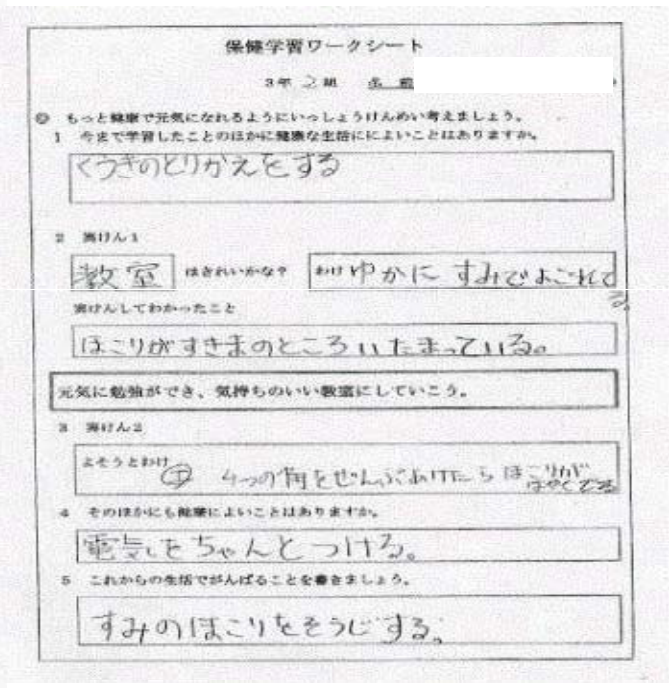 保健学習ワークシート
3年 2組 名前
◎ もっと健康で元気になれるようにいっしょうけんめい考えましょう。
1 今まで学習したことのほかに健康な生活にによいことはありますか。
くうきのとりかえをする
2 実けん1
教室 はきれいかな? わけ ゆかに すみでよごれてる。
実けんしてわかったこと
ほこりがすきまのところいたまっている。
元気に勉強ができ、気持ちのいい教室にしていこう。
3 実けん2
よそうとわけ
4つの角をぜんぶあけたらほこりがはやくでる
4 そのほかにも健康によいことはありますか。
電気をちゃんとつける。
5 これからの生活でがんばることを書きましょう。
すみのほこりをそうじする。